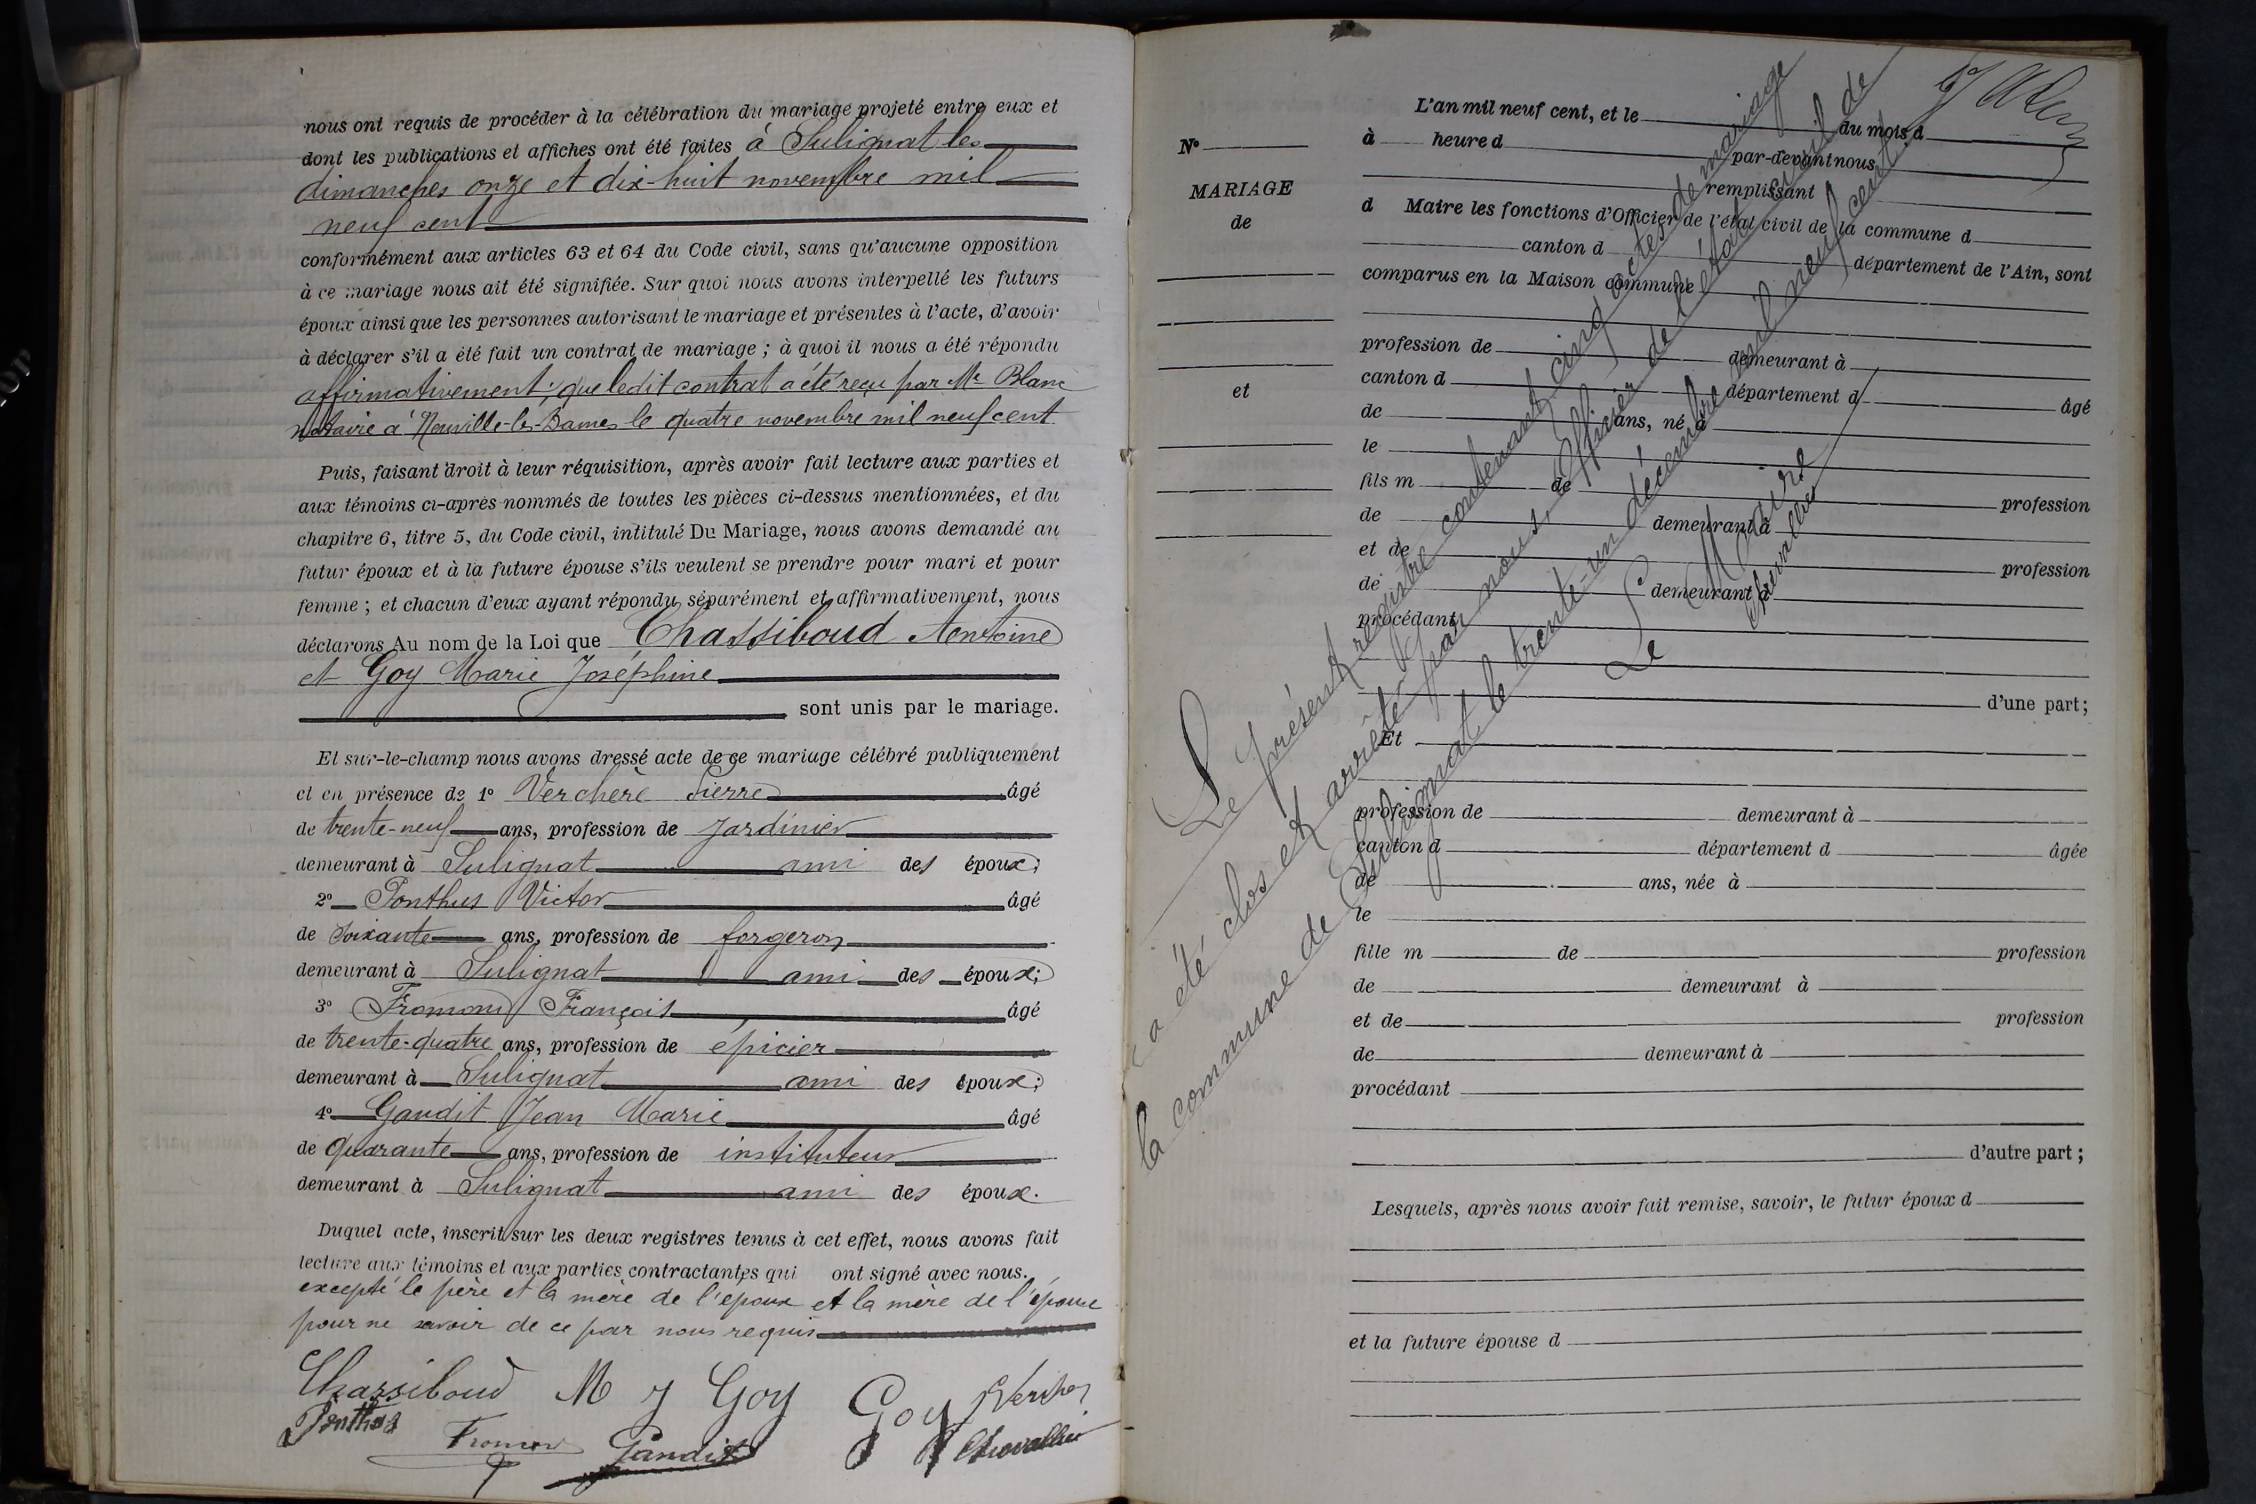 nous ont requis de procéder à la célébration du mariage projeté entre eux et
dont les publications et affiches ont été faites à Sulignat les
dimanches onze et dix-huit novembre mil
neuf cent
conformément aux articles 63 et 64 du Code civil, sans qu'aucune opposition
à ce mariage nous ait été signifiée. Sur quoi nous avons interpellé les futurs
époux ainsi que les personnes autorisant le mariage et présentes à l'acte, d'avoir
à déclarer s'il a été fait un contrat de mariage ; à quoi il nous a été répondu
affirmativement ; que ledit contrat a été reçu par Me Blanc
notaire à Neuville-les-Dames le quatre novembre mil neuf cent
Puis, faisant droit à leur réquisition, après avoir fait lecture aux parties et
aux témoins ci-après nommés de toutes les pièces ci-dessus mentionnées, et du
chapitre 6, titre 5, du Code civil, intitulé Du Mariage, nous avons demandé au
futur époux et à la future épouse s'ils veulent se prendre pour mari et pour
femme ; et chacun d'eux ayant répondu séparément et affirmativement, nous
déclarons Au nom de la Loi que Chassiboud Antoine
et Goy Marie Joséphine
sont unis par le mariage.
Et sur-le-champ nous avons dressé acte de ce mariage célébré publiquement
et en présence de 1° Verchère Pierre âgé
de trente-neuf ans, profession de jardinier
demeurant à Sulignat ami des époux ;
2° Ponthus Victor âgé
de soixante ans, profession de forgeron
demeurant à Sulignat ami des époux ;
3° Fromont François âgé
de trente-quatre ans, profession de épicier
demeurant à Sulignat ami des époux ;
4° Gandit Jean Marie âgé
de quarante ans, profession de instituteur
demeurant à Sulignat ami des époux.
Duquel acte, inscrit sur les deux registres tenus à cet effet, nous avons fait
lecture aux témoins et aux parties contractantes qui ont signé avec nous.
excepté le père et la mère de l'époux et la mère de l'épouse
pour ne savoir de ce par nous requis
Chassiboud M J Goy Goy Vercher
Ponthus Fromon Gandit Chevallier
N°
MARIAGE
de
et
L'an mil neuf cent, et le du mois d
à heure d par-devant nous
remplissant
d Maire les fonctions d'Officier de l'état civil de la commune d
canton d département de l'Ain, sont
comparus en la Maison commune
profession de demeurant à
canton d département d âgé
de ans, né à
le
fils m de profession
de demeurant à
et de profession
de demeurant à
procédant
d'une part ;
Et
profession de demeurant à
canton d département d âgée
de ans, née à
le
fille m de profession
de demeurant à
et de profession
de demeurant à
procédant
d'autre part ;
Lesquels, après nous avoir fait remise, savoir, le futur époux d
et la future épouse d
Le présent registre contenant cinq actes de mariage
a été clos et arrêté par nous, Officier de l'état civil de
la commune de Sulignat le trente-un décembre mil neuf cent.
Le Maire
Chevallier